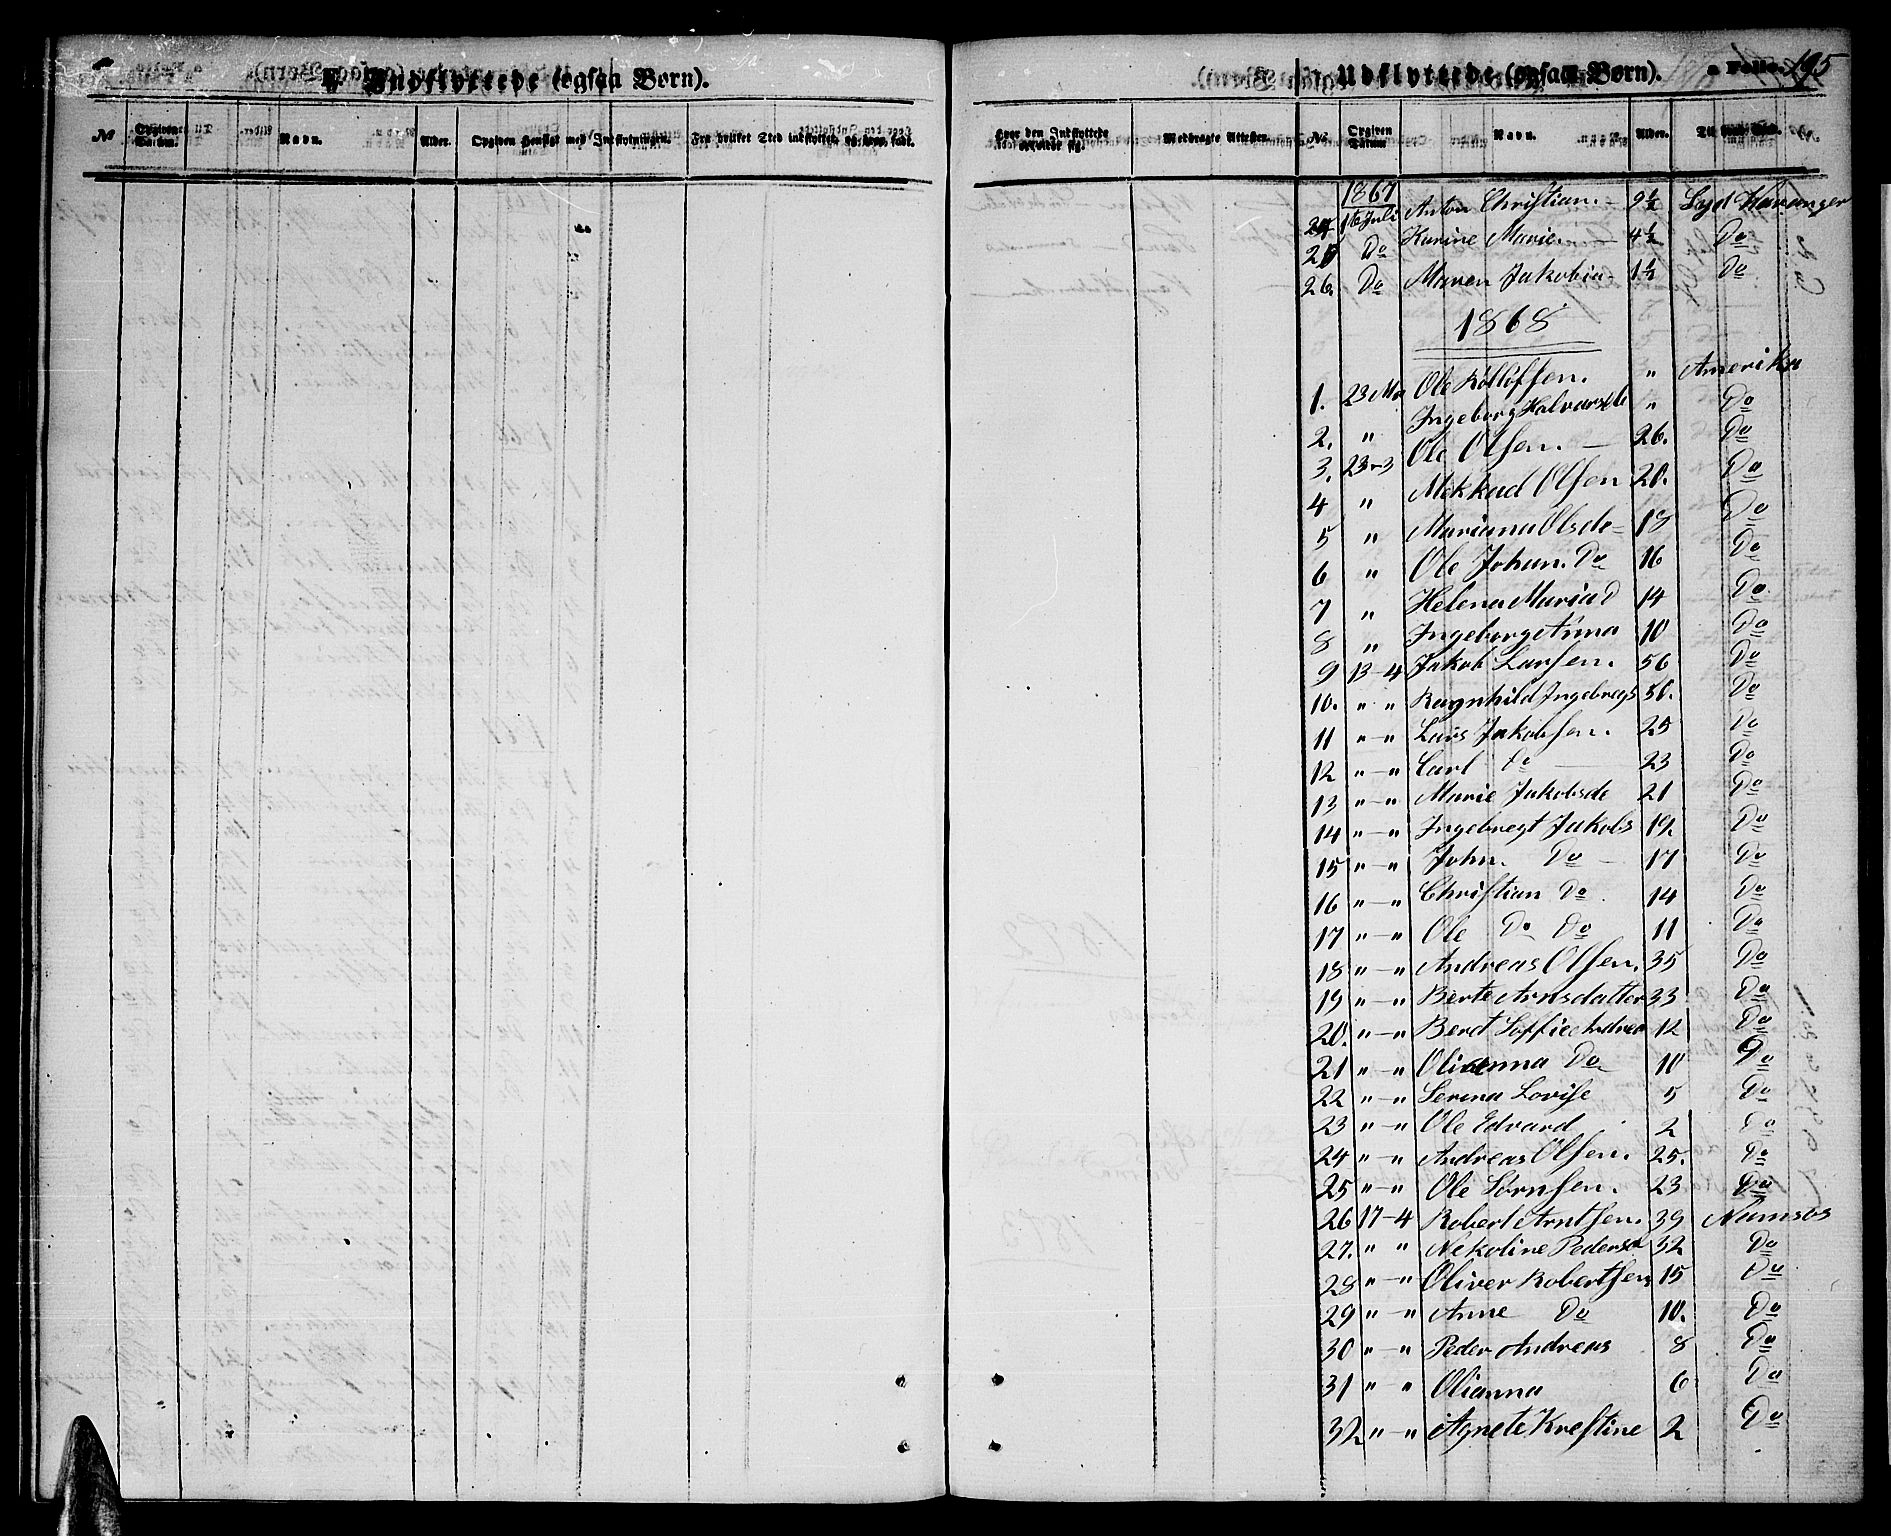 F. Indflyttede (ogsaa Børn).
Udflyttede (ogsaa Børn).
a Folio 195
№ Opgiven Datum. Navn. Alder. Opgiven Hensigt med Indflytningen. Fra hvilket Sted indflyttet, og hvor født.
Hvor den Indflyttede opholdt sig. Medbragte Attester. № Opgiven Datum Navn. Alder. Til hvad Sted.
1867
24 16 Juli Anton Christian. 9½ Syd Waranger
25 Do Karine Marie. 4½ Do
26. Do Maren Jakobia 1½ Do
1868
1. 23 Ole Rolloffsen. " Amerika
2. " Ingeborg Halvarsde " Do
3. 23-3 Ole Olsen. 26. Do
4 " Mekkad Olsen 20. Do
5 " Mariana Olsde 18 Do
6 " Ole Johan. Do 16 Do
7 " Helena Maria D 14 Do
8 " Ingeborg Anna 10 Do
9 13-4 Jakob Larsen. 56 Do
10. " " Ragnhild Ingebregs 51. Do
11 "-" Lars Jakobsen. 25 Do
12 "-" Carl do 23 Do
13 "-" Marie Jakobsde 21 Do
14 "-" Ingebregt Jakobs 19. Do
15 "-" John. Do 17 Do
16 "-" Christian Do 14 Do
17 "-" Ole Do Do 11 Do
18 "-" Andreas Olsen. 35 Do
19 "-" Berte Arnsdatter 33 Do
20. "-" Berdt Soffie Andrea 12 Do
21 "-" Olianna Do 10 Do
22 "-" Serina Lovise 5 Do
23 "-" Ole Edvard 2 Do
24 "-" Andreas Olsen. 25. Do
25 "-" Ole Sørnsen. 23 Do
26 17-4 Robert Arntsen. 39 Namsos
27. " " Nekoline Pedersd 32 Do
28 "-" Oliver Robertsen 15 Do
29 "-" Anne Do 10. Do
30 "-" Peder Andreas 8 Do
31 "-" Olianna 6 Do
32 "-" Agnete Krestine 2 Do